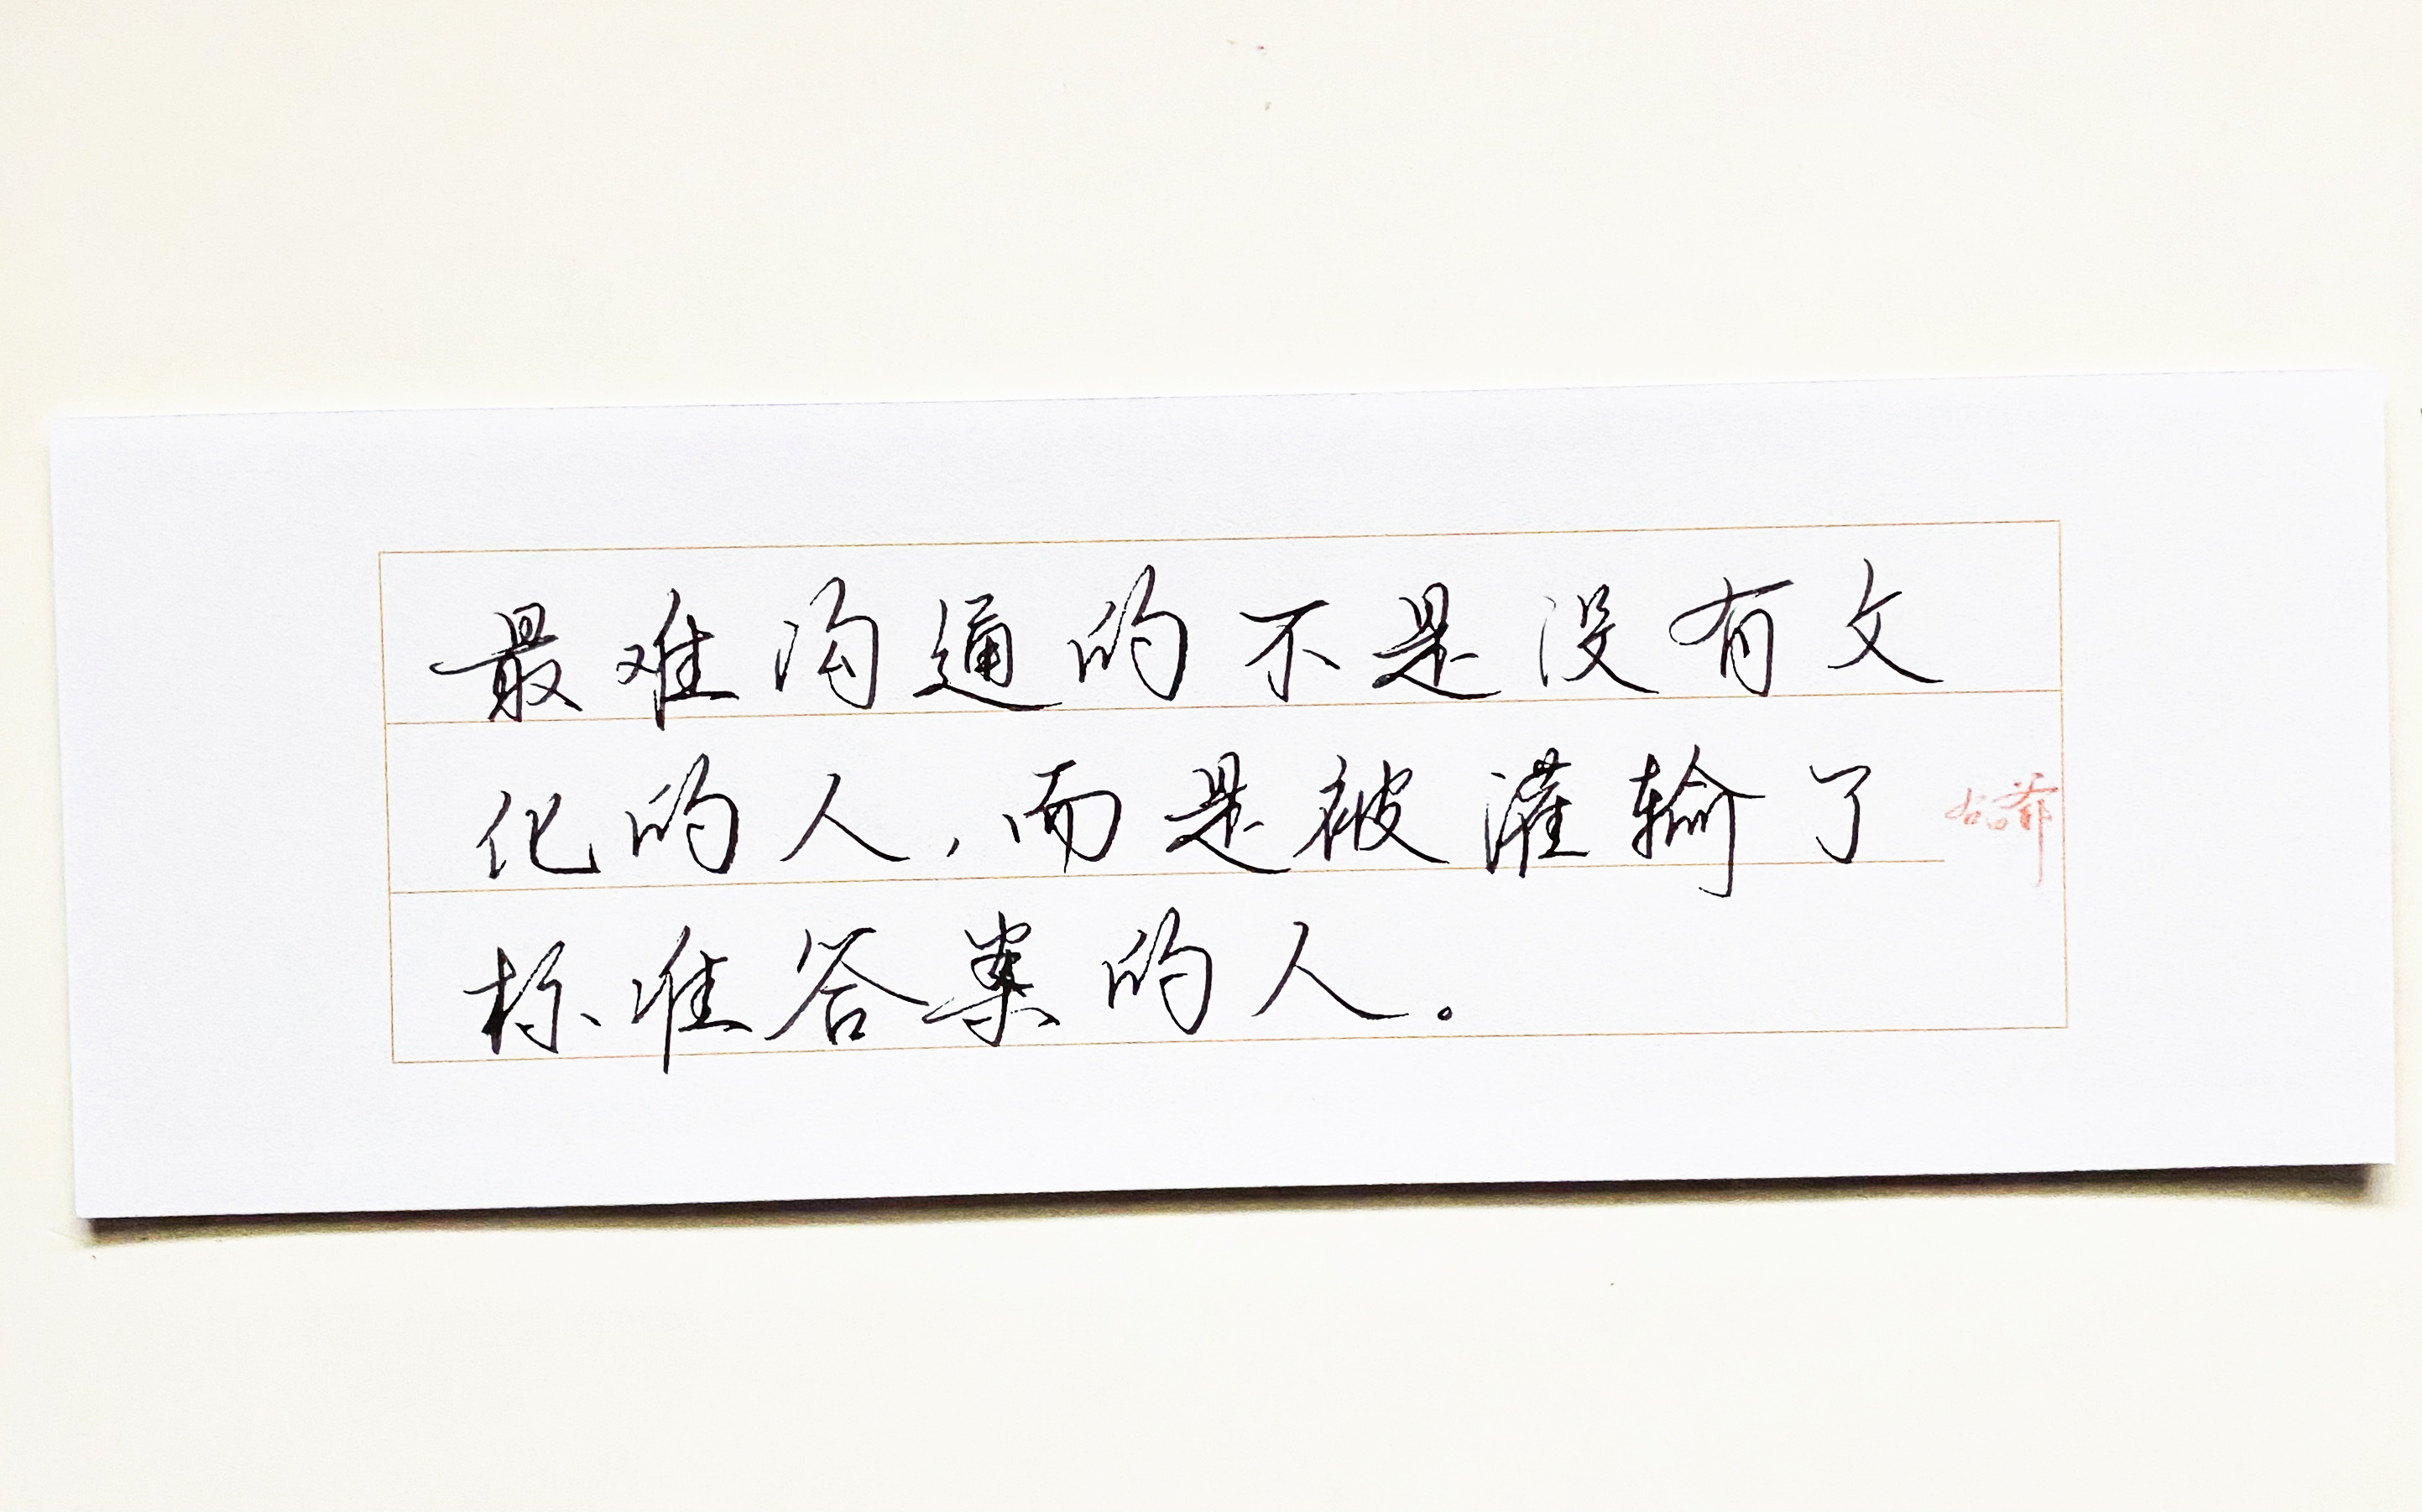 最难沟通的不是没有文
化的人,而是被灌输了
标准答案的人。